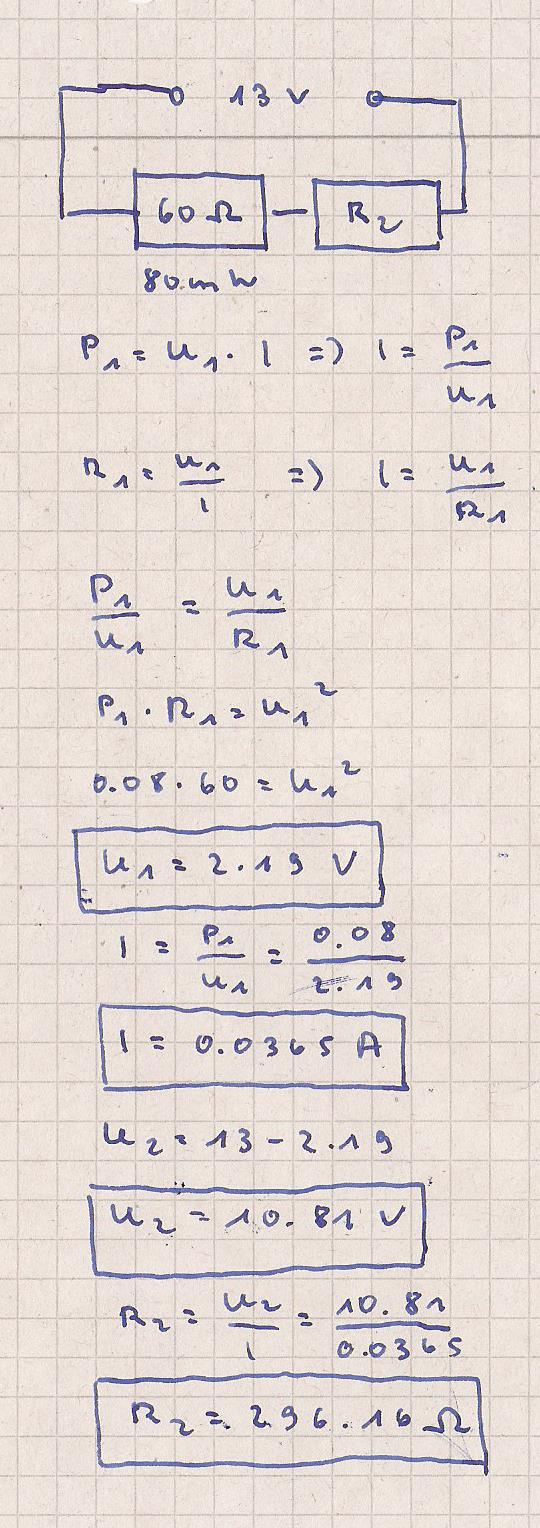 13 V
60 Ω R₂
80 mW
P₁ = U₁ · I => I = P₁/U₁
R₁ = U₁/I => I = U₁/R₁
P₁/U₁ = U₁/R₁
P₁ · R₁ = U₁²
0.08 · 60 = U₁²
U₁ = 2.19 V
I = P₁/U₁ = 0.08/2.19
I = 0.0365 A
U₂ = 13 - 2.19
U₂ = 10.81 V
R₂ = U₂/I = 10.81/0.0365
R₂ = 296.16 Ω